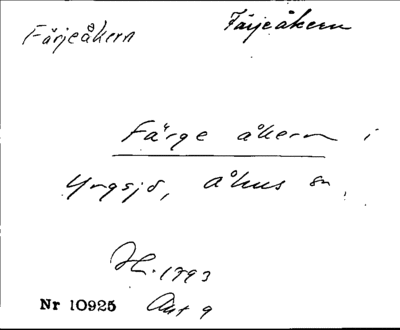 Färjeåkern Färjeåkern
Färge åkern i
Yngsjö, Åhus sn.
H. 1793
Nr 10925 Akt 9